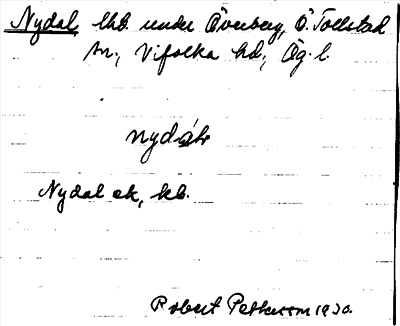 Nydal, lhb. under Överberg, Ö. Tollstad
sn., Vifolka hd., Ög. l.
Nydal ek, kb.
Robert Pettersson 1930.